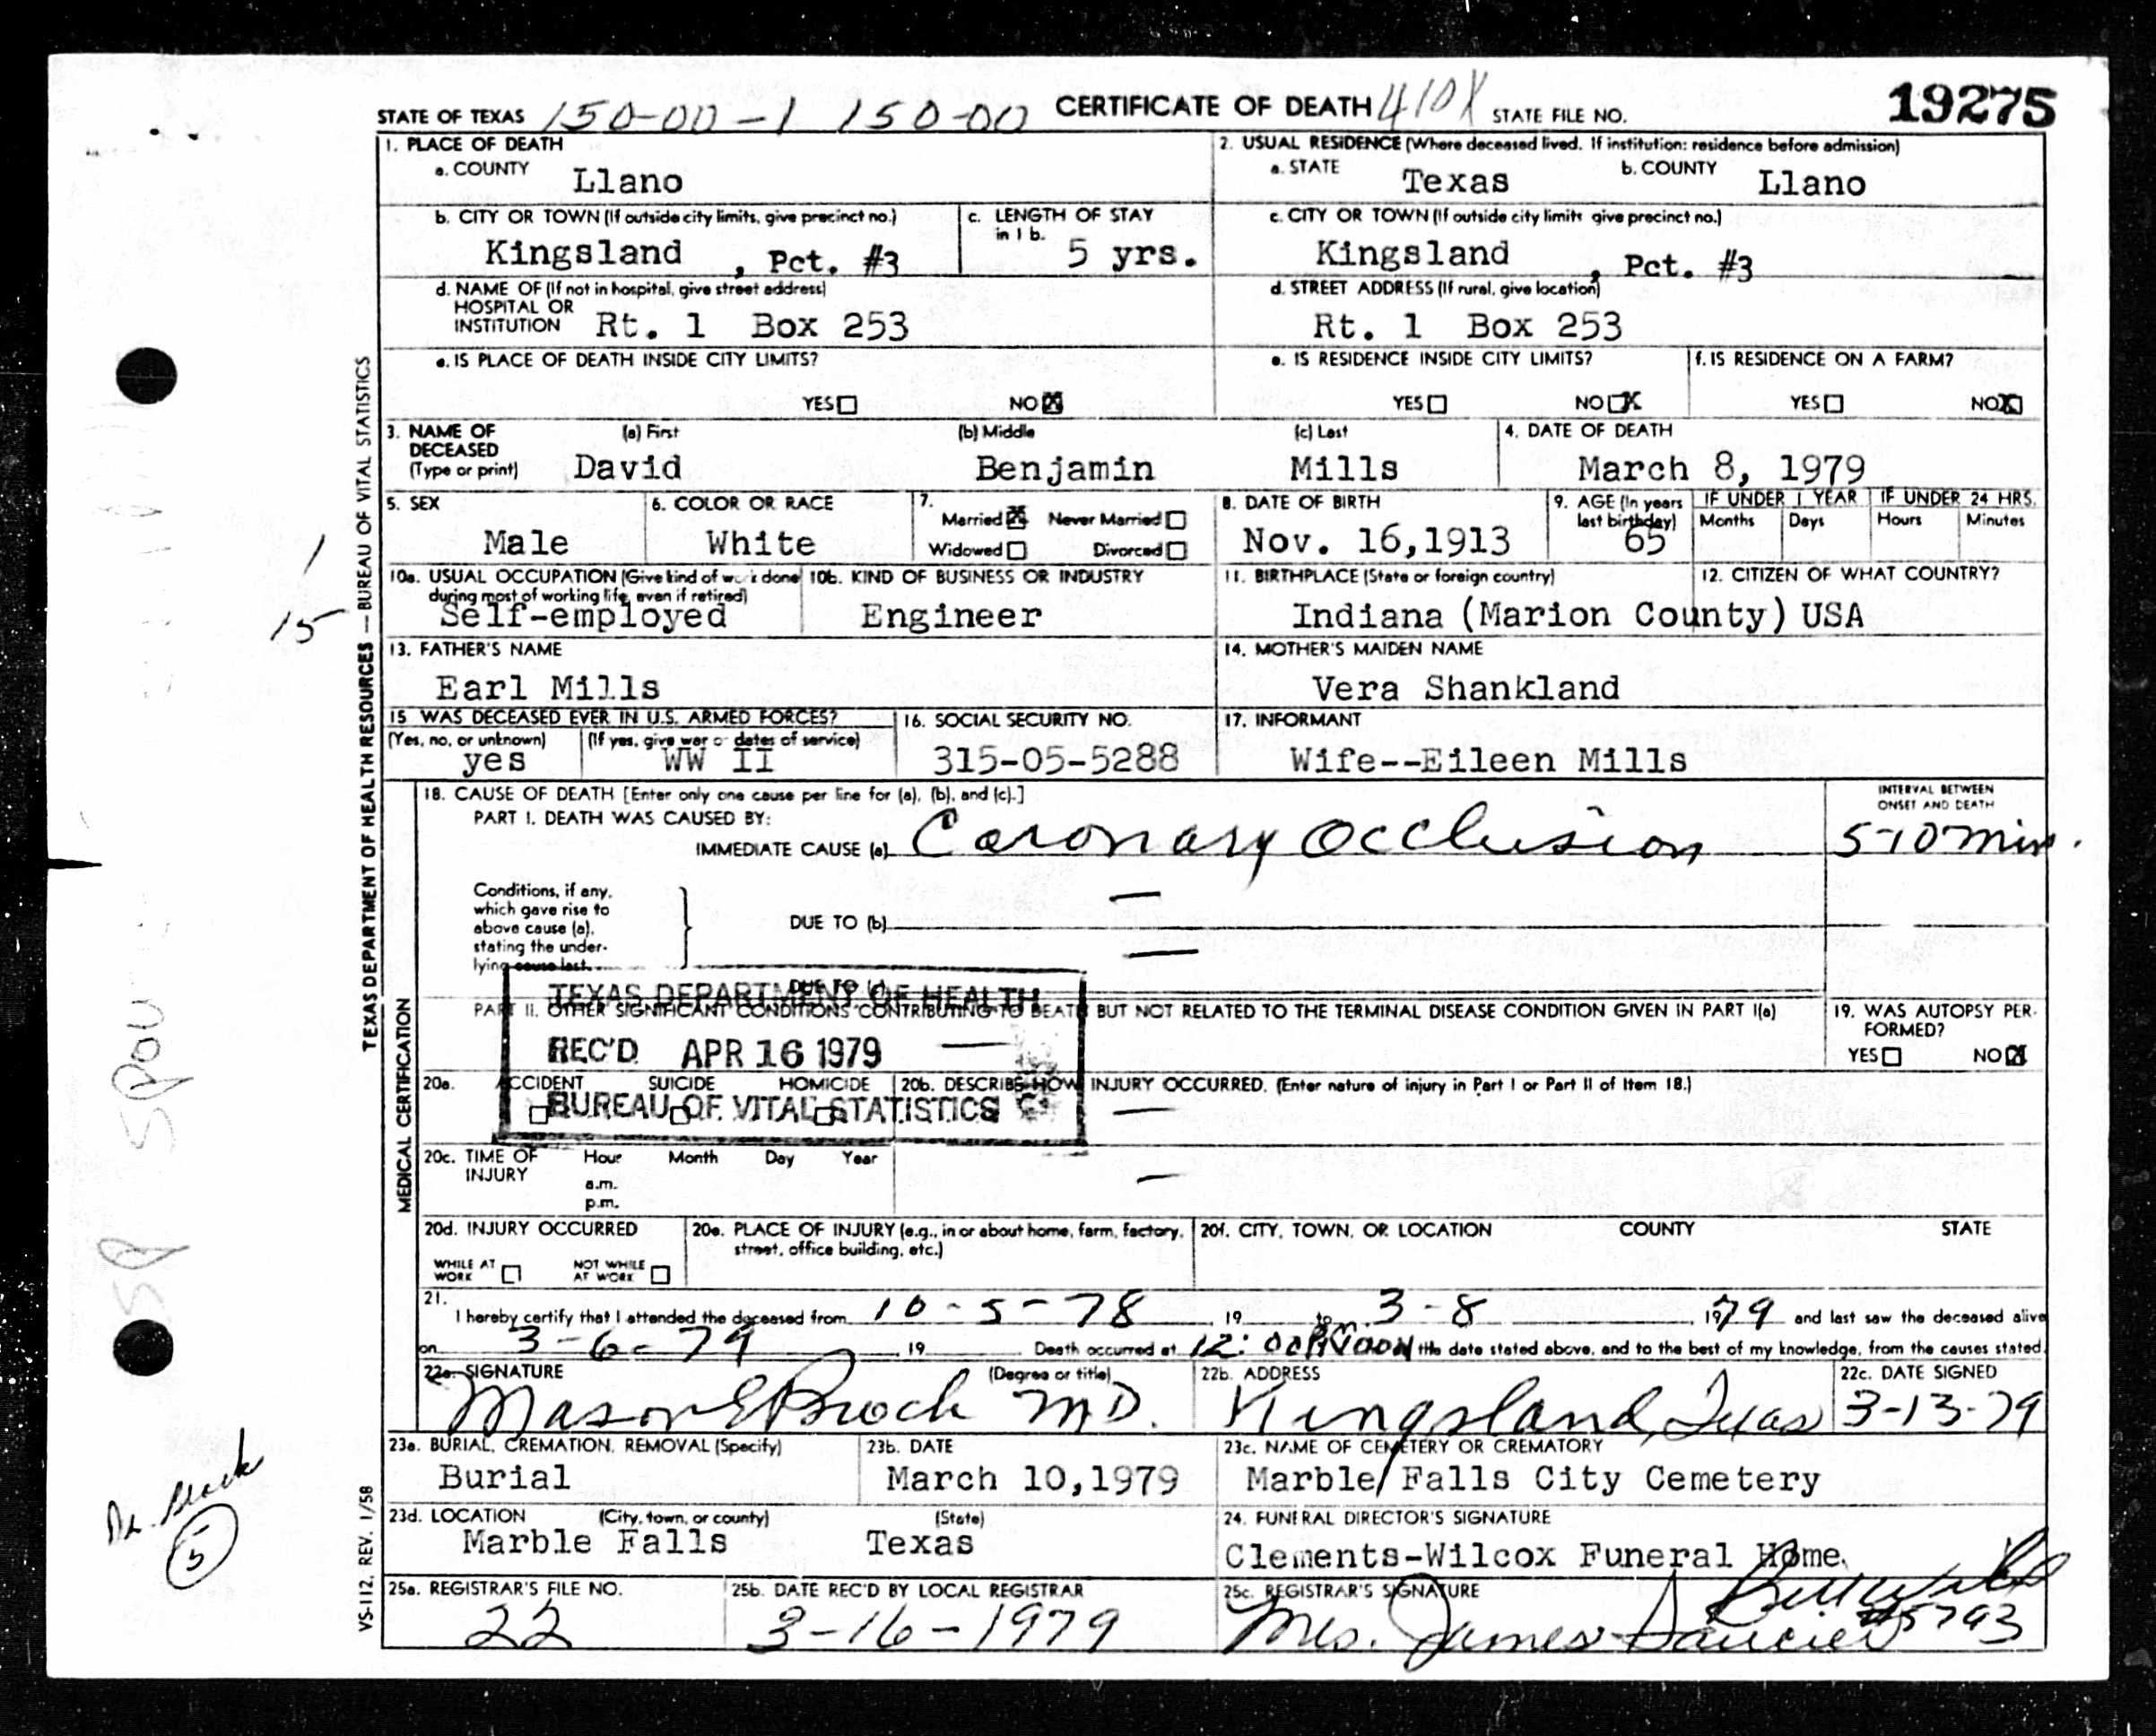 STATE OF TEXAS 150-00-1 150-00 CERTIFICATE OF DEATH 410X STATE FILE NO. 19275
1. PLACE OF DEATH
a. COUNTY Llano
2. USUAL RESIDENCE (Where deceased lived. If institution: residence before admission)
a. STATE Texas b. COUNTY Llano
b. CITY OR TOWN (If outside city limits, give precinct no.)
Kingsland , Pct. #3
c. LENGTH OF STAY in 1 b.
5 yrs.
c. CITY OR TOWN (If outside city limits give precinct no.)
Kingsland , Pct. #3
d. NAME OF (If not in hospital, give street address)
HOSPITAL OR
INSTITUTION Rt. 1 Box 253
d. STREET ADDRESS (If rural, give location)
Rt. 1 Box 253
e. IS PLACE OF DEATH INSIDE CITY LIMITS?
YES☐ NO☒
e. IS RESIDENCE INSIDE CITY LIMITS?
YES☐ NO☒
f. IS RESIDENCE ON A FARM?
YES☐ NO☒
3. NAME OF DECEASED (Type or print)
(a) First (b) Middle (c) Last
David Benjamin Mills
4. DATE OF DEATH
March 8, 1979
5. SEX
Male
6. COLOR OR RACE
White
7.
Married☒ Never Married☐
Widowed☐ Divorced☐
8. DATE OF BIRTH
Nov. 16,1913
9. AGE (In years last birthday)
65
IF UNDER 1 YEAR
Months Days
IF UNDER 24 HRS.
Hours Minutes
10a. USUAL OCCUPATION (Give kind of work done during most of working life, even if retired)
Self-employed
10b. KIND OF BUSINESS OR INDUSTRY
Engineer
11. BIRTHPLACE (State or foreign country)
Indiana (Marion County)
12. CITIZEN OF WHAT COUNTRY?
USA
13. FATHER'S NAME
Earl Mills
14. MOTHER'S MAIDEN NAME
Vera Shankland
15 WAS DECEASED EVER IN U.S. ARMED FORCES?
(Yes, no, or unknown) (If yes, give war or dates of service)
yes WW II
16. SOCIAL SECURITY NO.
315-05-5288
17. INFORMANT
Wife--Eileen Mills
18. CAUSE OF DEATH [Enter only one cause per line for (a), (b), and (c).]
PART I. DEATH WAS CAUSED BY:
IMMEDIATE CAUSE (a) Coronary Occlusion
INTERVAL BETWEEN ONSET AND DEATH
5-10 min.
Conditions, if any,
which gave rise to
above cause (a),
stating the under-
lying cause last.
DUE TO (b) —
DUE TO (c) —
PART II. OTHER SIGNIFICANT CONDITIONS CONTRIBUTING TO DEATH BUT NOT RELATED TO THE TERMINAL DISEASE CONDITION GIVEN IN PART I(a)
—
19. WAS AUTOPSY PER-
FORMED?
YES☐ NO☒
TEXAS DEPARTMENT OF HEALTH
REC'D APR 16 1979
BUREAU OF VITAL STATISTICS
20a. ACCIDENT SUICIDE HOMICIDE
20b. DESCRIBE HOW INJURY OCCURRED. (Enter nature of injury in Part I or Part II of Item 18.)
—
20c. TIME OF INJURY
Hour Month Day Year
a.m.
p.m.
—
20d. INJURY OCCURRED
WHILE AT WORK ☐ NOT WHILE AT WORK ☐
20e. PLACE OF INJURY (e.g., in or about home, farm, factory, street, office building, etc.)
20f. CITY, TOWN, OR LOCATION COUNTY STATE
21.
I hereby certify that I attended the deceased from 10-5-78, 19 to 3-8, 1979 and last saw the deceased alive
on 3-6-79, 19 Death occurred at 12:00 NOON the date stated above, and to the best of my knowledge, from the causes stated.
22a. SIGNATURE (Degree or title)
Mason E Brock MD.
22b. ADDRESS
Kingsland, Texas
22c. DATE SIGNED
3-13-79
23a. BURIAL, CREMATION, REMOVAL (Specify)
Burial
23b. DATE
March 10,1979
23c. NAME OF CEMETERY OR CREMATORY
Marble Falls City Cemetery
23d. LOCATION (City, town, or county) (State)
Marble Falls Texas
24. FUNERAL DIRECTOR'S SIGNATURE
Clements-Wilcox Funeral Home
25a. REGISTRAR'S FILE NO.
22
25b. DATE REC'D BY LOCAL REGISTRAR
3-16-1979
25c. REGISTRAR'S SIGNATURE
Mrs. James Saucier
#5793
TEXAS DEPARTMENT OF HEALTH RESOURCES — BUREAU OF VITAL STATISTICS
MEDICAL CERTIFICATION
VS-112, REV. 1/58
1
15
Dr. Brock
5